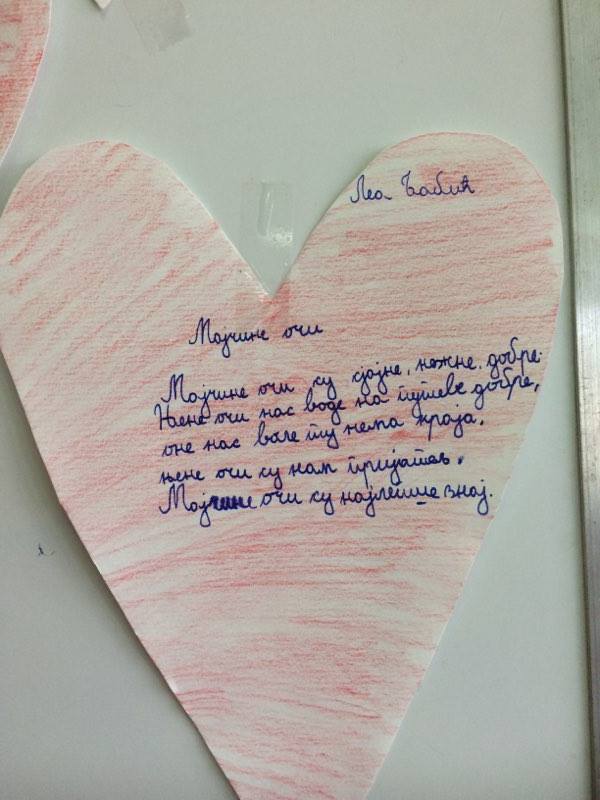 Леа Бабић
Мајчине очи
Мајчине очи су сјајне, нежне, добре.
Њене очи нас воде на путеве добре,
оне нас воле ту нема краја.
њене очи су нам пријатељ.
Мајчине очи су најлепше знај.